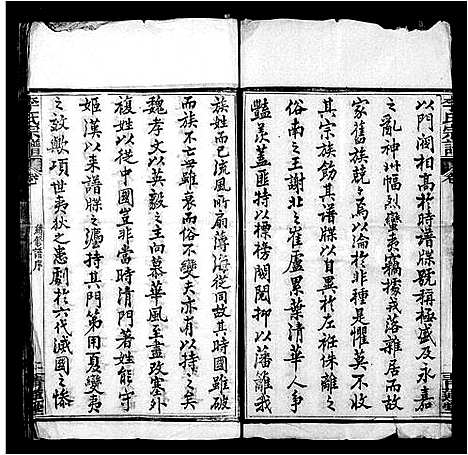 以門閥相高於時譜牒號稱極盛及永嘉
之亂神州幅烈蠻夷竊據戎落雜居而故
家舊族競競焉以淪於非種是懼莫不收
其宗族飭其譜牒以自異於左衽侏離之
俗南之王謝北之崔盧累葉清華人人
豔羨蓋匪特以標榜閥閱抑以藩籬我
族姓而已流風所扇溥海從同故時國雖破
不亡宇毋雖衰而俗不變夫亦有以持之矣
魏孝文以英毅之主向慕華風至盡改塞外
複姓以從中國豈非當時清門著姓能守
姬漢以來譜牒之灋持其門第用夏變夷
之效歟項世夷狄之悲劇於六代滅國之慘
李氏宗譜
卷
續修譜序